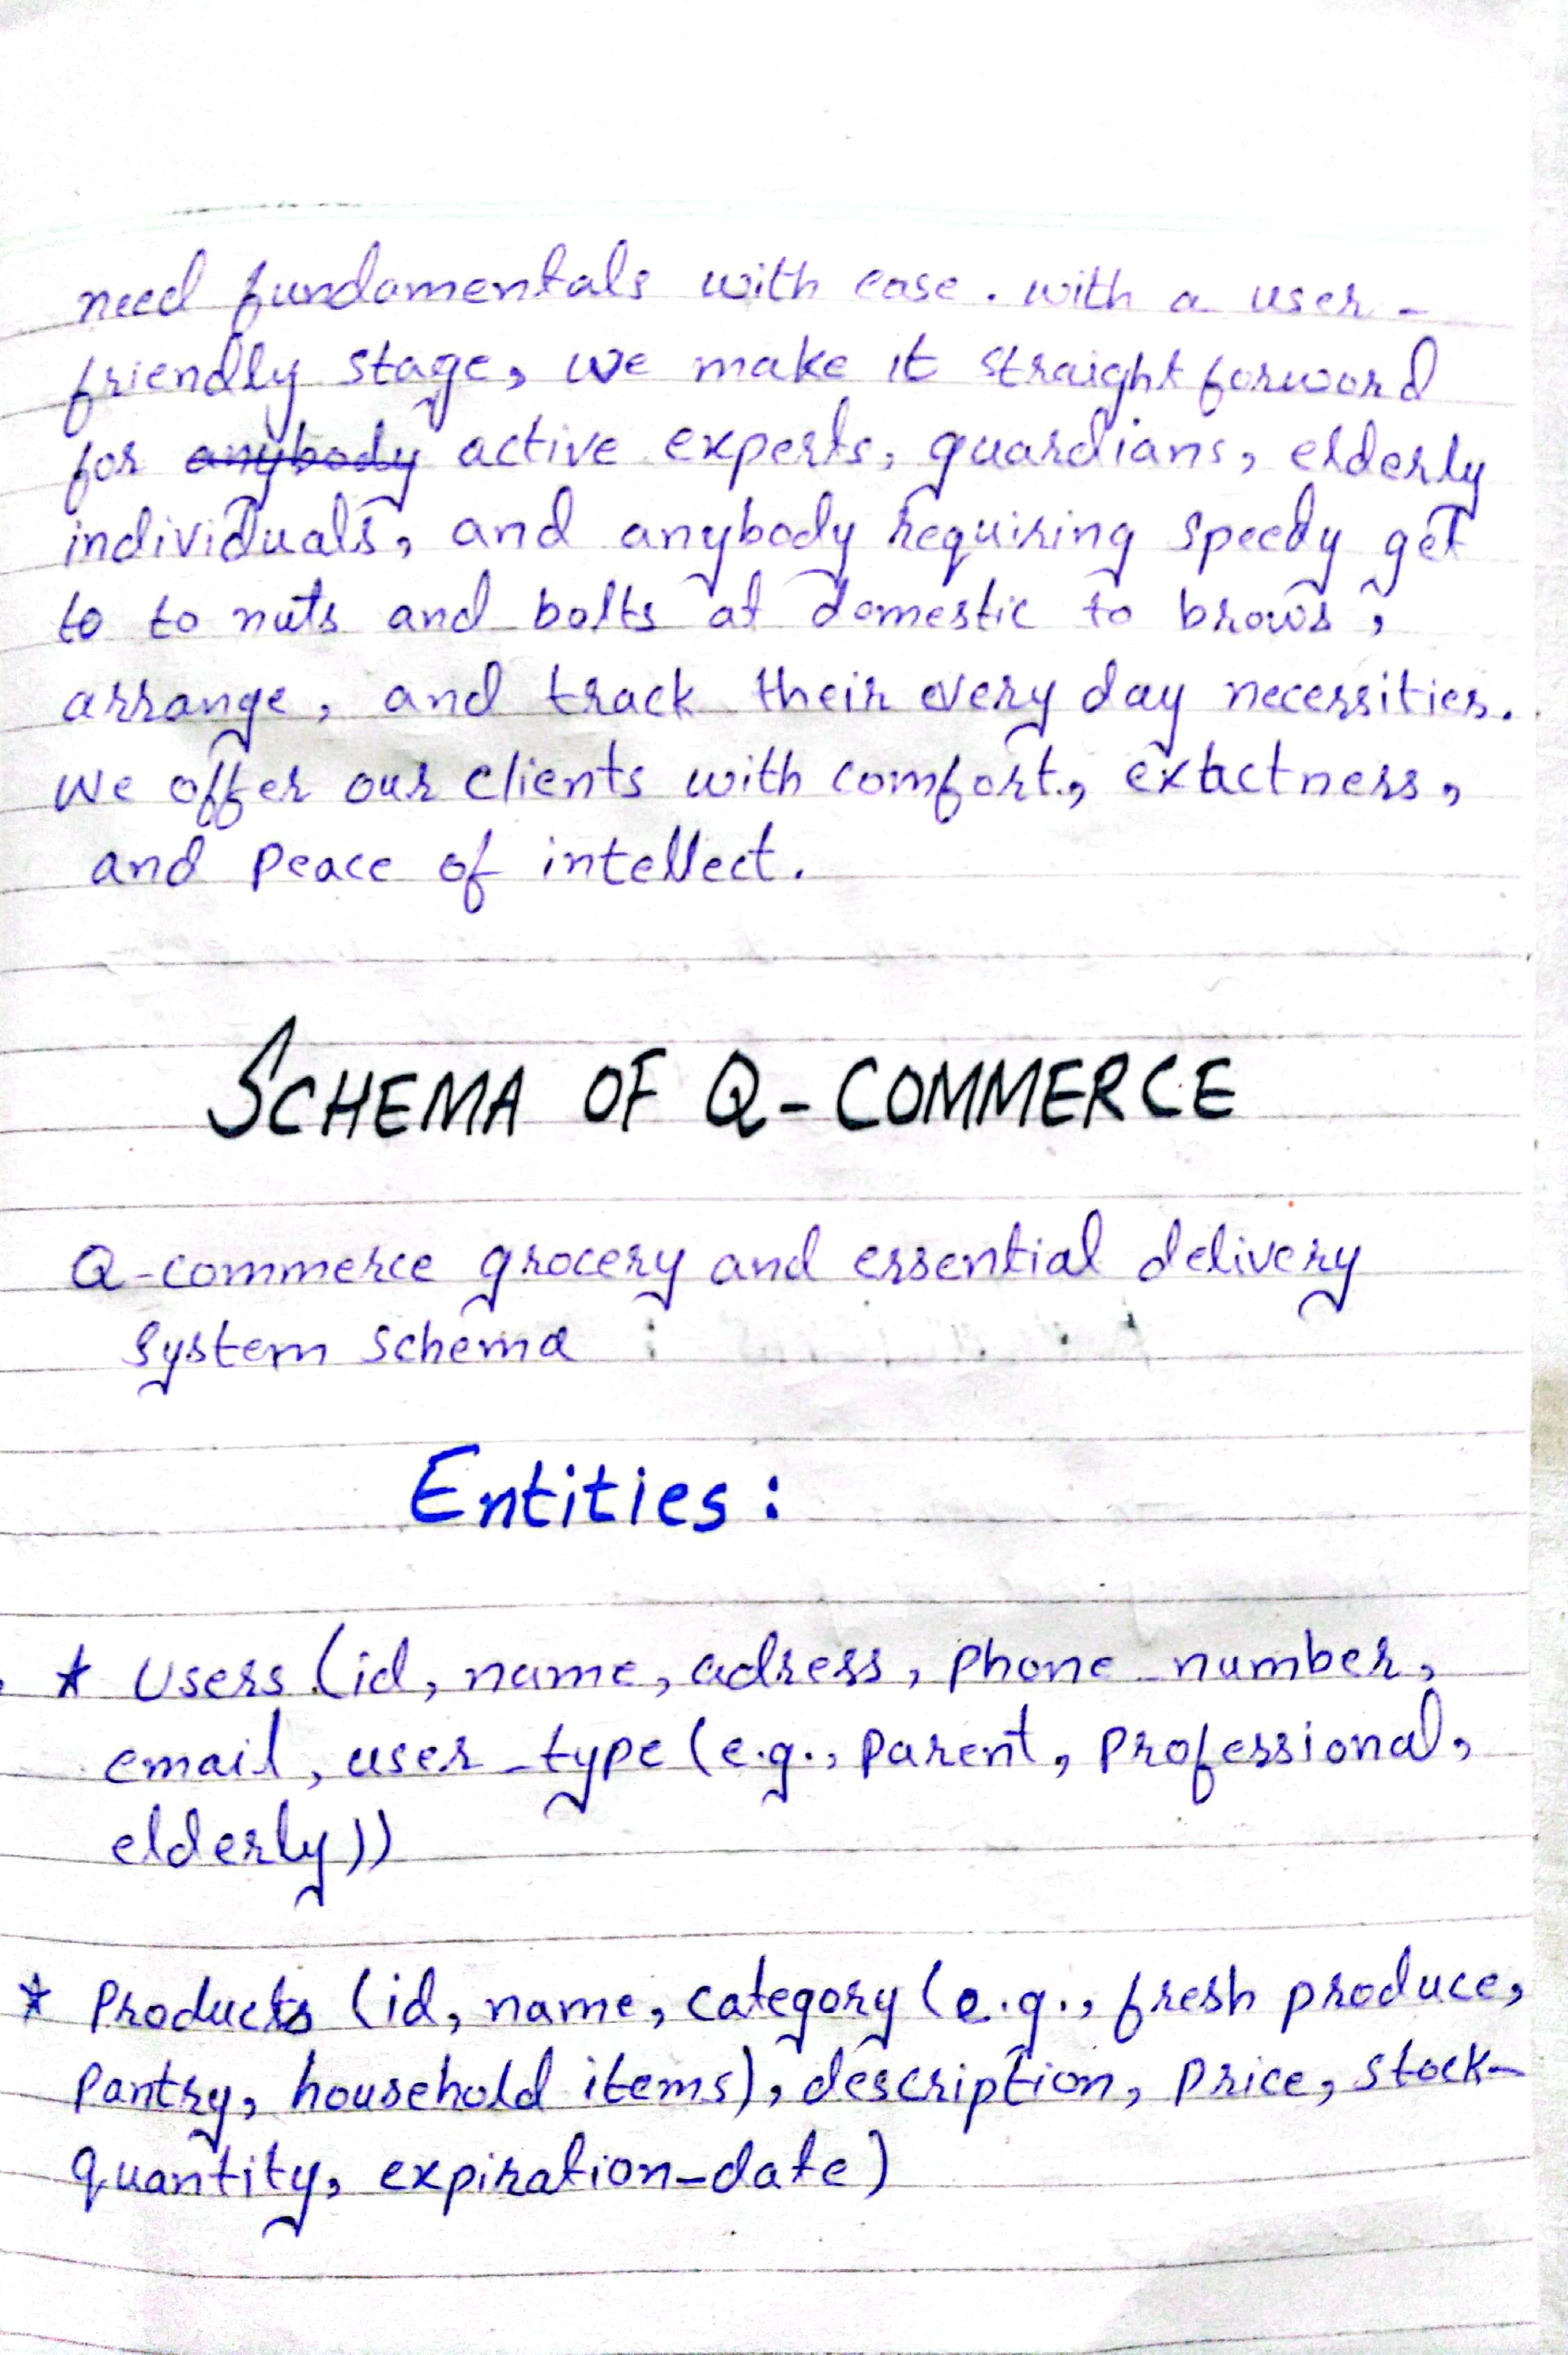 need fundamentals with ease. with a user-
friendly stage, we make it straightforword
for anybody active experts, guardians, elderly
individuals, and anybody requiring speedy get
to to nuts and bolts at domestic to brows,
arrange, and track their every day necessities.
We offer our clients with comfort, extactness,
and peace of intellect.
SCHEMA OF Q-COMMERCE
Q-commerce grocery and essential delivery
system schema :
Entities :
* Users (id, name, adress, phone number,
email, user_type (e.g., parent, professional,
elderly))
* Products (id, name, category (e.g., fresh produce,
pantry, household items), description, price, stock-
quantity, expiration-date)